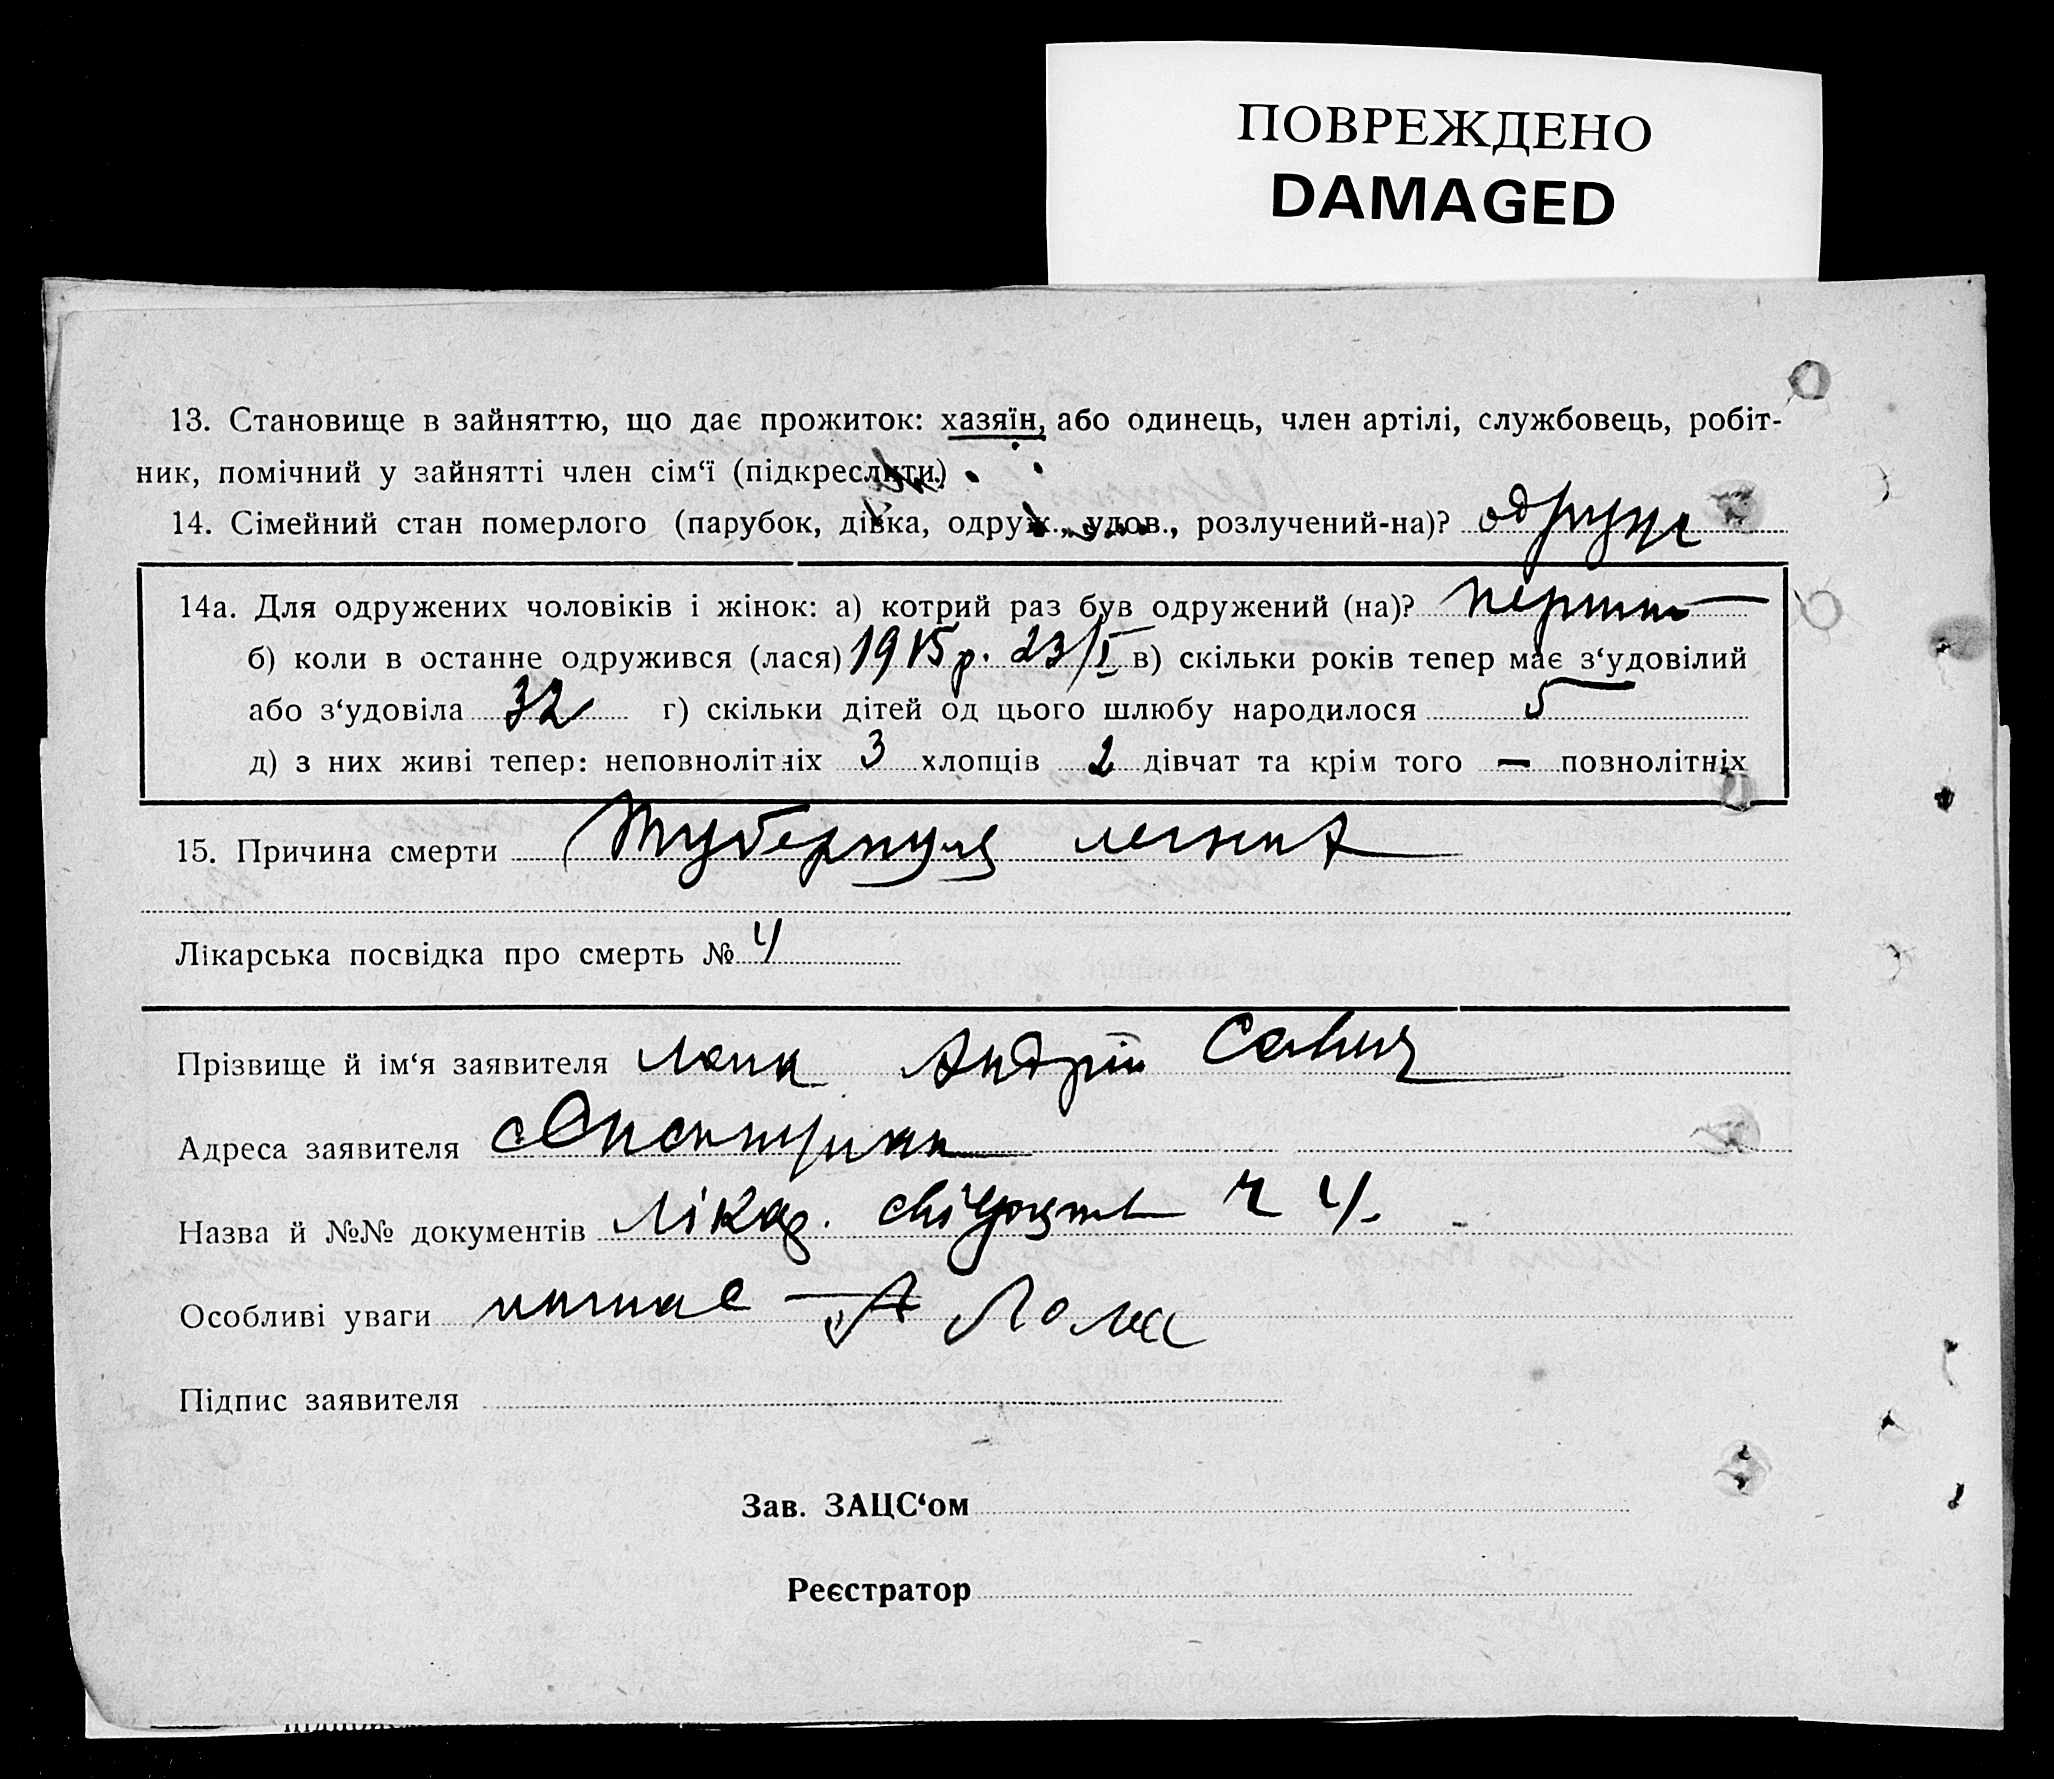 ПОВРЕЖДЕНО
DAMAGED
13. Становище в зайняттю, що дає прожиток: хазяїн, або одинець, член артілі, службовець, робіт-
ник, помічний у зайнятті член сім‘ї (підкреслити)
14. Сімейний стан померлого (парубок, дівка, одруж., удов., розлучений-на)?
14а. Для одружених чоловіків і жінок: а) котрий раз був одружений (на)? перший
б) коли в останне одружився (лася) 1915 р. 23/I в) скільки років тепер має з‘удовілий
або з‘удовіла 32 г) скільки дітей од цього шлюбу народилося 5
д) з них живі тепер: неповнолітніх 3 хлопців 2 дівчат та крім того — повнолітніх
15. Причина смерти Туберкульоз легенів
Лікарська посвідка про смерть № 4
Прізвище й ім‘я заявителя Андрій Савич
Адреса заявителя
Назва й №№ документів Лікар. свідоцтв ч 4.
Особливі уваги немає А
Підпис заявителя
Зав. ЗАЦС‘ом
Реєстратор